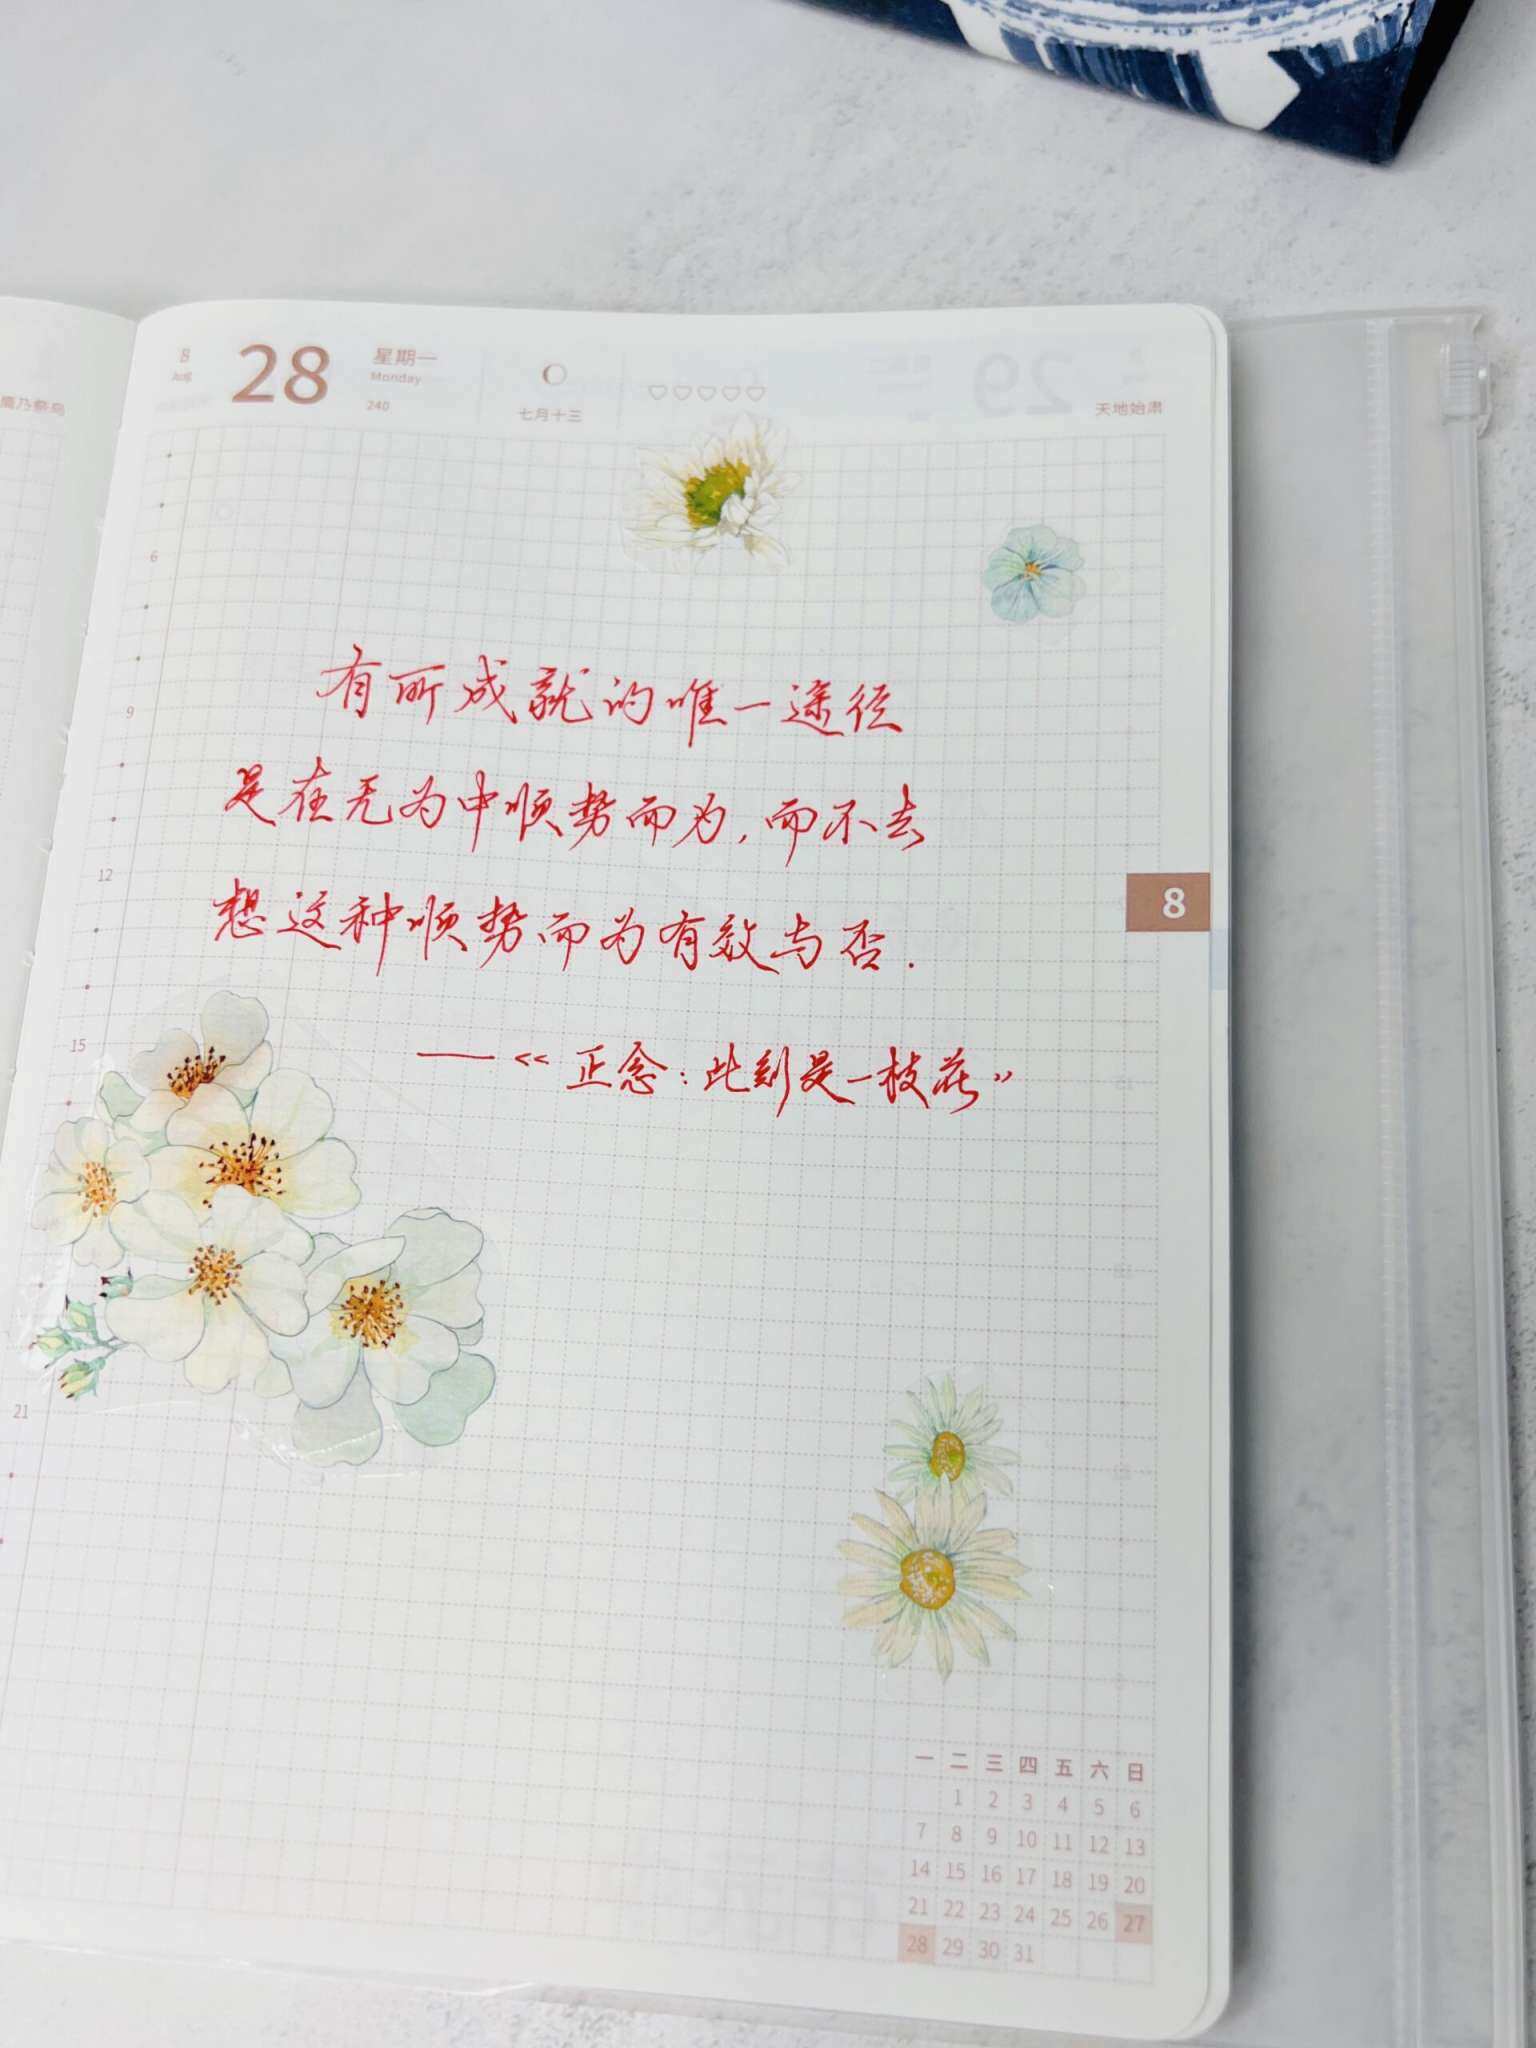 鹰乃祭鸟
8
AUG
28
星期一
Monday
240
七月十三
天地始肃
6
9
12
15
21
8
有所成就的唯一途径
是在无为中顺势而为,而不去
想这种顺势而为有效与否.
——《正念:此刻是一枝花》
一 二 三 四 五 六 日
1 2 3 4 5 6
7 8 9 10 11 12 13
14 15 16 17 18 19 20
21 22 23 24 25 26 27
28 29 30 31